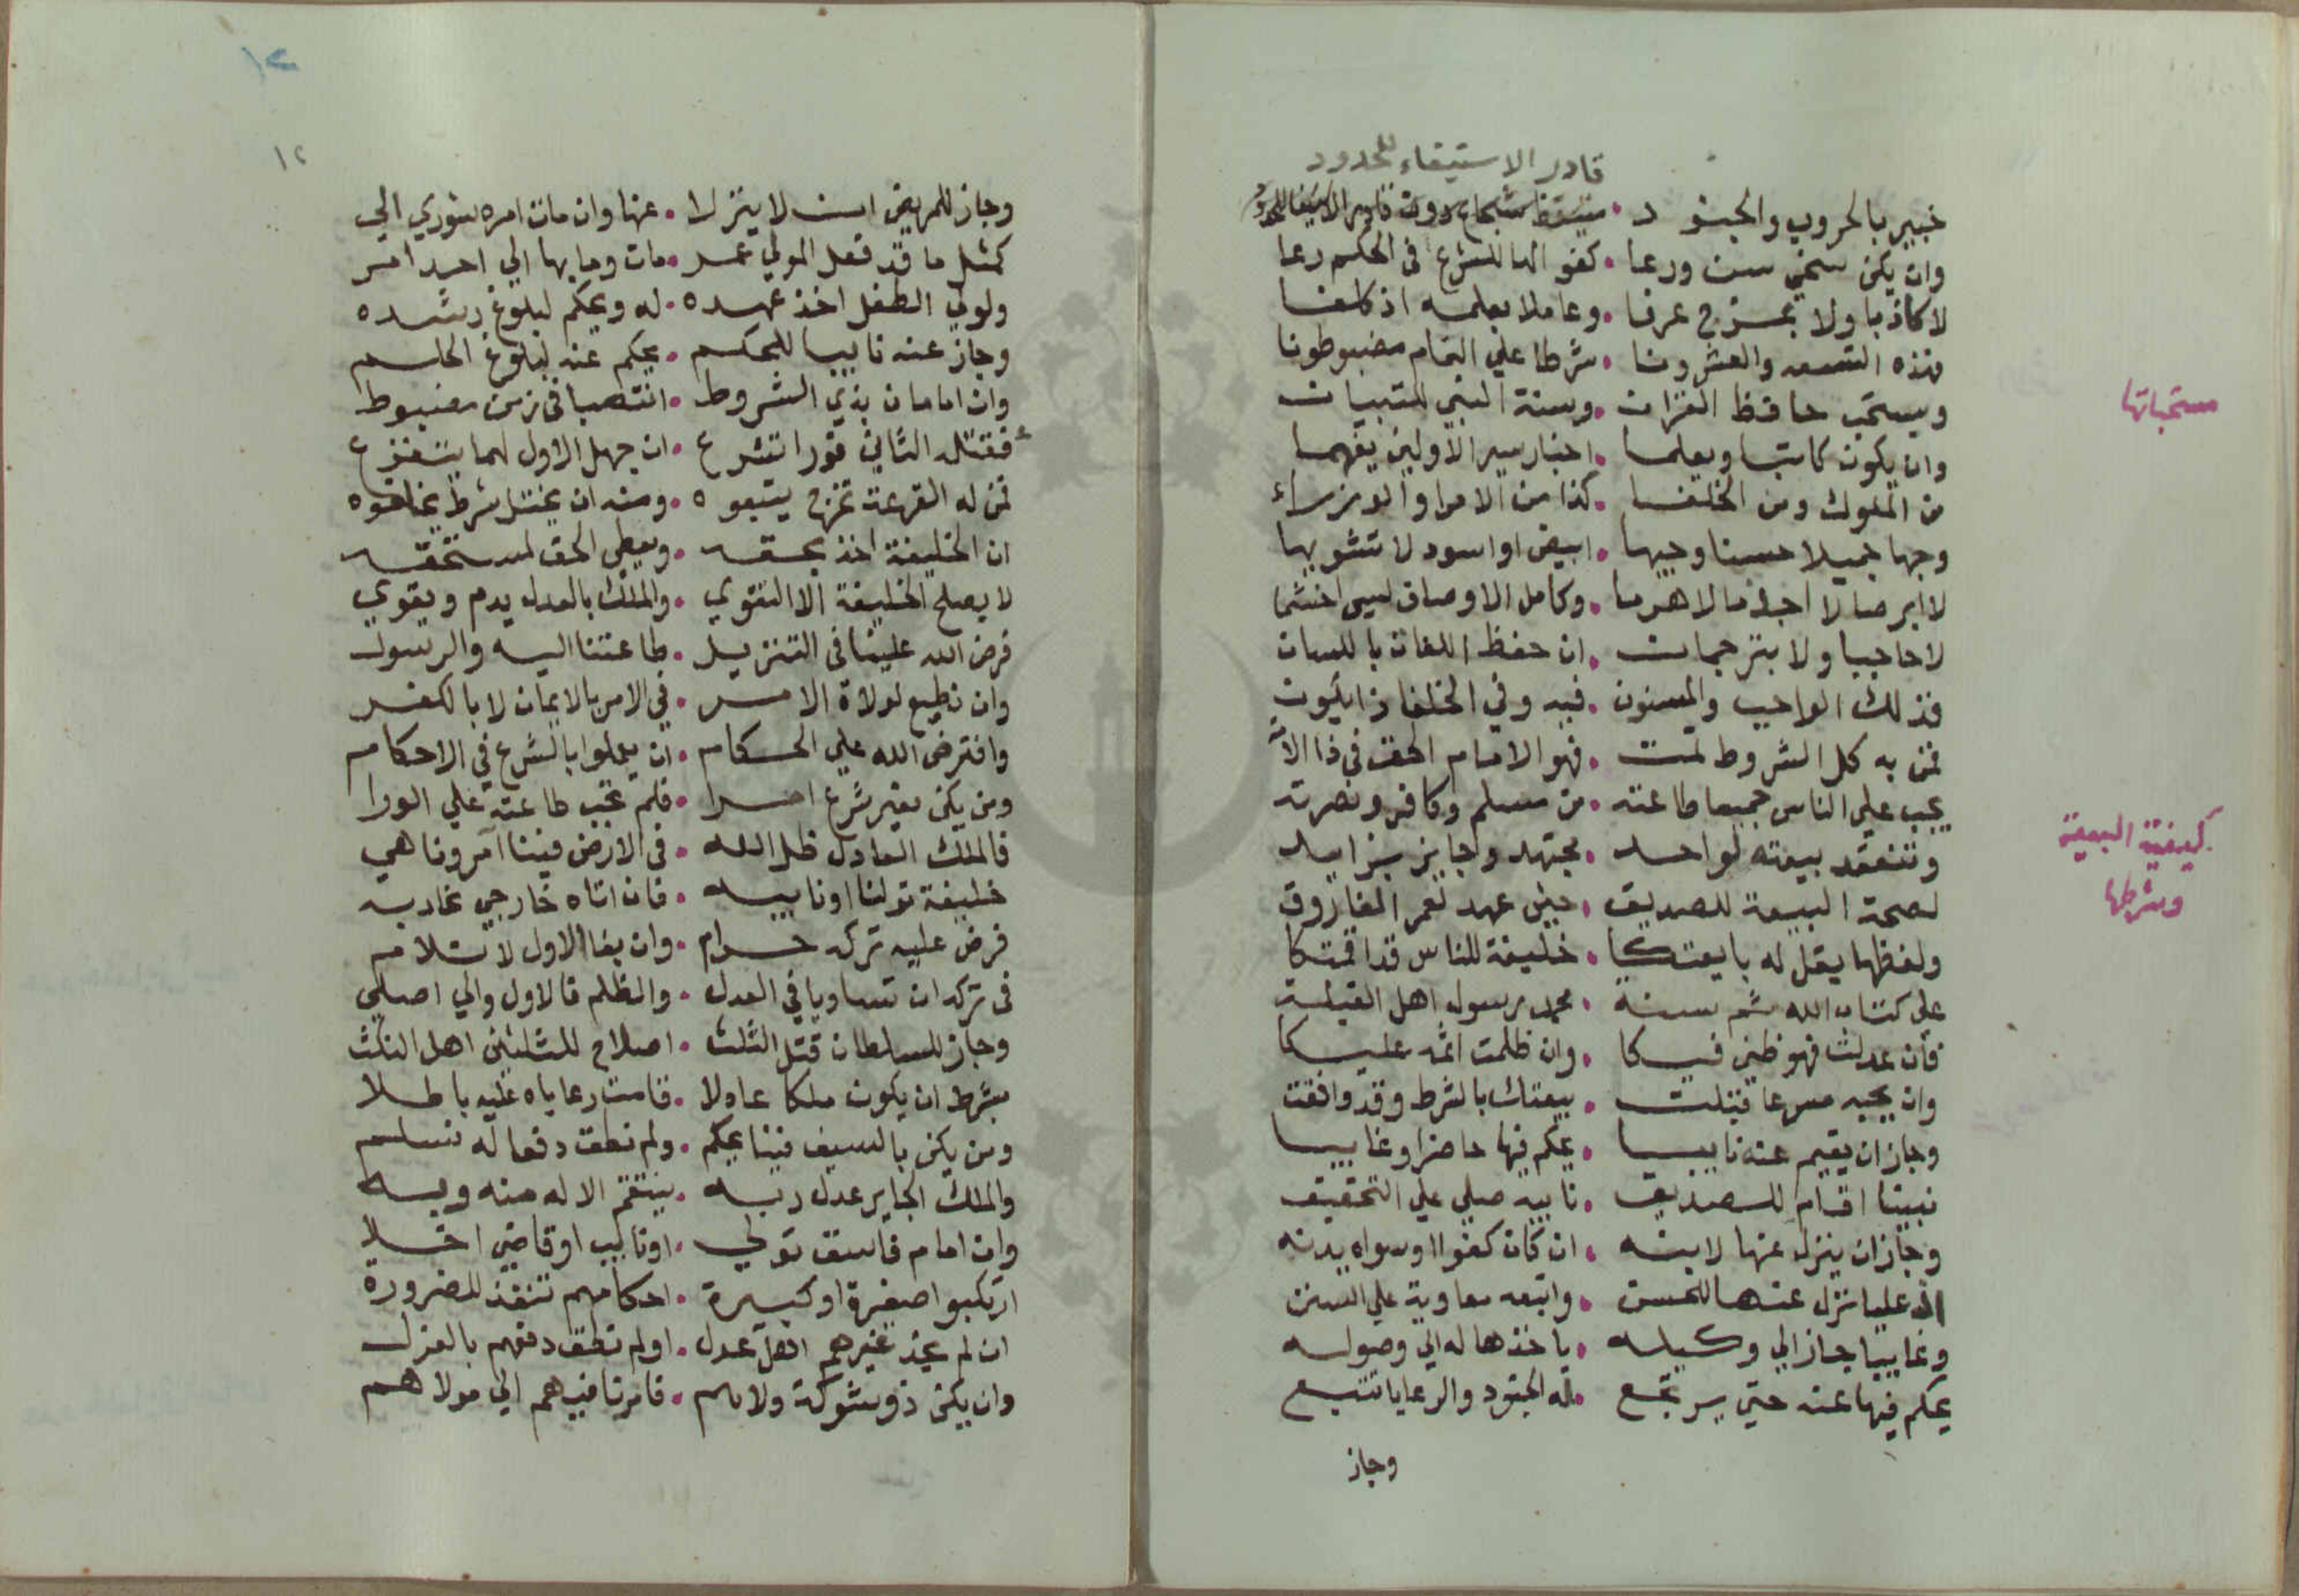 قادر الاستيفاء للحدود
خبير بالحروب والجنود
وان يكن سخي سن ورعا . كفو الها للشرع في الحكم رعا
لا كاذبا ولا بمزح عرفا . وعاملا بعلمه اذ كلفا
فهذه التسعه والعشرونا . شرطا علي التمام مضبوطونا
ويستحب حافظ القران . وسنة النبي للتبيان
مستحباتها
وان يكون كاتبا ويعلما . اخبار سير الاولين يفهما
من الملوك ومن الخلفا . كذا من الامرا والوزراء
وجها جميلا حسنا وجيها . ابيض او اسود لا تشويها
لا ابرصا لا اجذما لا هرما . وكامل الاوصاف ليس اخشما
لا حاجبا ولا بترجمان . ان حفظ اللغات باللسان
فذلك الواجب والمسنون . فيه وفي الخلفا ذا يكون
فمن به كل الشروط تمت . فهو الامام الحق في ذا الامة
يجب علي الناس جميعا طاعته . من مسلم وكافر ونصرته
وتنعقد بيعته لواحد . مجتهد وجايز بزايد
كيفية البيعة
وشرطها
لصحة البيعة للصديق . حين عهد لعمر الفاروق
ولفظها يقل له بايعتكا . خليفة للناس قد اقمتكا
علي كتاب الله ثم سنة . محمد رسول اهل القبلة
فان عدلت فهو ظني فيكا . وان ظلمت اثمه عليكا
وان يجبه مسرعا قبلت . بيعتك بالشرط وقد وافقت
وجاز ان يقيم عنه نايبا . يحكم فيها حاضرا وغايبا
نبينا اقام للصديق . نايبه صلي علي التحقيق
وجاز ان ينزل عنها لابنه . ان كان كفوا اوسواه يدنه
ان عليا نزل عنها للحسن . واتبعه معاوية علي السنن
وغايبا جاز الي وكيله . ياخذها له الي وصوله
يحكم فيها عنه حتي يرتجع . له الجنود والرعايا تتبع
وجاز
١٢
١٢
وجاز للمريض ان لا ينزلا . عنها وان مات امره شوري الي
كمثل ما قد فعل المولي عمر . مات وما بها الي احد امر
ولولي الطفل اخذ عهده . له ويحكم لبلوغ رشده
وجاز عنه نايبا للحكم . يحكم عنه لبلوغ الحلم
وان امامان بذي الشروط . انتصبا في زمن مضبوط
فقتله الثاني فورا تشرع . ان جهل الاول لهما يستقرع
فمن له القرعة تخرج يتبعوه . ومنه ان يختل شرط يخلعوه
ان الخليفة اخذ بحقه . ويعطي الحق لمستحقه
لا يصلح الخليفة الا التقوي . والملك بالعدل يدم ويقوي
فرض الله علينا في التنزيل . طاعتنا اليه والرسول
وان نطيع لولاة الامر . في الامر بالايمان لا بالكفر
وافترض الله علي الحكام . ان يعملوا بالشرع في الاحكام
ومن يكن بغير شرع امرا . فلم تجب طاعته علي الورا
فالملك العادل ظل الله . في الارض فينا آمر وناهي
خليفة تولنا او نايبه . فان اتاه خارجي نحاربه
فرض عليه تركه حرام . وان بغا الاول لا تلام
في تركه ان تساويا في العدل . والظلم فالاول والي اصلي
وجاز للسلطان قتل الثلث . اصلاح للثلثين اهل النكث
بشرط ان يكون ملكا عادلا . قامت رعاياه عليه باطلا
ومن يكن بالسيف فينا يحكم . ولم نطق دفعا له نسلم
والملك الجاير عدل ربه . ينتقم الاله منه وبه
وان امام فاسق تولي . او نايب او قاضي اخلا
ارتكبوا صغيرة او كبيرة . احكامهم تنفذ للضرورة
ان لم يجد غيرهم اهل عدل . او لم نطق دفعهم بالعزل
وان يكن ذو شوكة ولاهم . فامرنا فيهم الي مولاهم